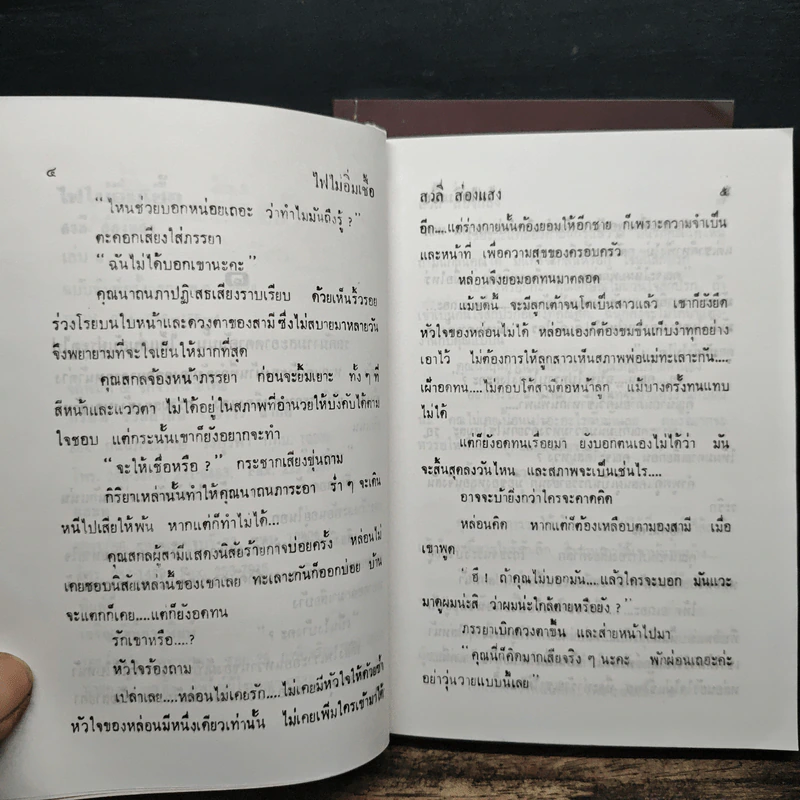 ๔
ไฟไม่อิ่มเชื้อ
“ไหนช่วยบอกหน่อยเถอะ ว่าทำไมมันถึงรู้ ?”
ตะคอกเสียงใส่ภรรยา
“ฉันไม่ได้บอกเขานะคะ”
คุณนาถนภาปฏิเสธเสียงราบเรียบ ด้วยเห็นริ้วรอย
ร่วงโรยบนใบหน้าและดวงตาของสามี ซึ่งไม่สบายมาหลายวัน
จึงพยายามที่จะใจเย็นให้มากที่สุด
คุณสกลจ้องหน้าภรรยา ก่อนจะยิ้มเยาะ ทั้ง ๆ ที่
สีหน้าและแววตา ไม่ได้อยู่ในสภาพที่อำนวยให้บังคับได้ตาม
ใจชอบ แต่กระนั้นเขาก็ยังอยากจะทำ
“จะให้เชื่อหรือ ?” กระชากเสียงขุ่นถาม
กิริยาเหล่านั้นทำให้คุณนาถนภาระอา ร่ำ ๆ จะเดิน
หนีไปเสียให้พ้น หากแต่ก็ทำไม่ได้...
คุณสกลผู้สามีแสดงนิสัยร้ายกาจบ่อยครั้ง หล่อนไม่
เคยชอบนิสัยเหล่านี้ของเขาเลย ทะเลาะกันก็ออกบ่อย บ้าน
จะแตกก็เคย....แต่ก็ยังอดทน
รักเขาหรือ....?
หัวใจร้องถาม
เปล่าเลย....หล่อนไม่เคยรัก....ไม่เคยมีหัวใจให้ด้วยซ้ำ
หัวใจของหล่อนมีหนึ่งเดียวเท่านั้น ไม่เคยเพิ่มใครเข้ามาได้
สวลี ส่องแสง
๕
อีก....แต่ร่างกายนั้นต้องยอมให้อีกชาย ก็เพราะความจำเป็น
และหน้าที่ เพื่อความสุขของครอบครัว
หล่อนจึงยอมอดทนมาตลอด
แม้บัดนี้ จะมีลูกเต้าจนโตเป็นสาวแล้ว เขาก็ยังยึด
หัวใจของหล่อนไม่ได้ หล่อนเองก็ต้องข่มขื่นเก็บงำทุกอย่าง
เอาไว้ ไม่ต้องการให้ลูกสาวเห็นสภาพพ่อแม่ทะเลาะกัน....
เฝ้าอดทน....ไม่ตอบโต้สามีต่อหน้าลูก แม้บางครั้งทนแทบ
ไม่ได้
แต่ก็ยังอดทนเรื่อยมา ยังบอกตนเองไม่ได้ว่า มัน
จะสิ้นสุดลงวันไหน และสภาพจะเป็นเช่นไร....
อาจจะบ้ายิ่งกว่าใครจะคาดคิด
หล่อนคิด หากแต่ก็ต้องเหลือบตามองสามี เมื่อ
เขาพูด
“ฮึ ! ถ้าคุณไม่บอกมัน...แล้วใครจะบอก มันแวะ
มาดูผมน่ะสิ ว่าผมน่ะใกล้ตายหรือยัง ?”
ภรรยาเบิกดวงตาขึ้น และส่ายหน้าไปมา
“คุณนี่ก็คิดมากเสียจริง ๆ นะคะ พักผ่อนเถอะค่ะ
อย่าวุ่นวายแบบนี้เลย”